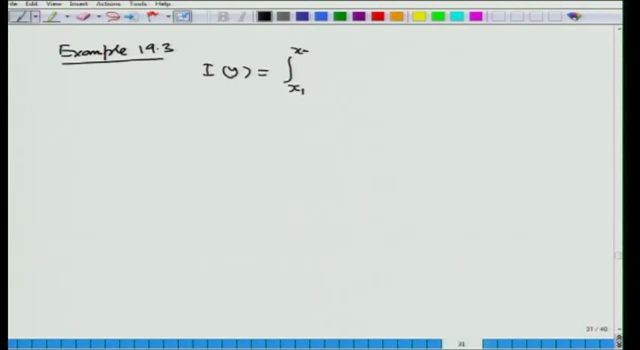 File Edit View Insert Actions Tools Help
Example 19.3
I(y) = ∫
x₁
31 / 40